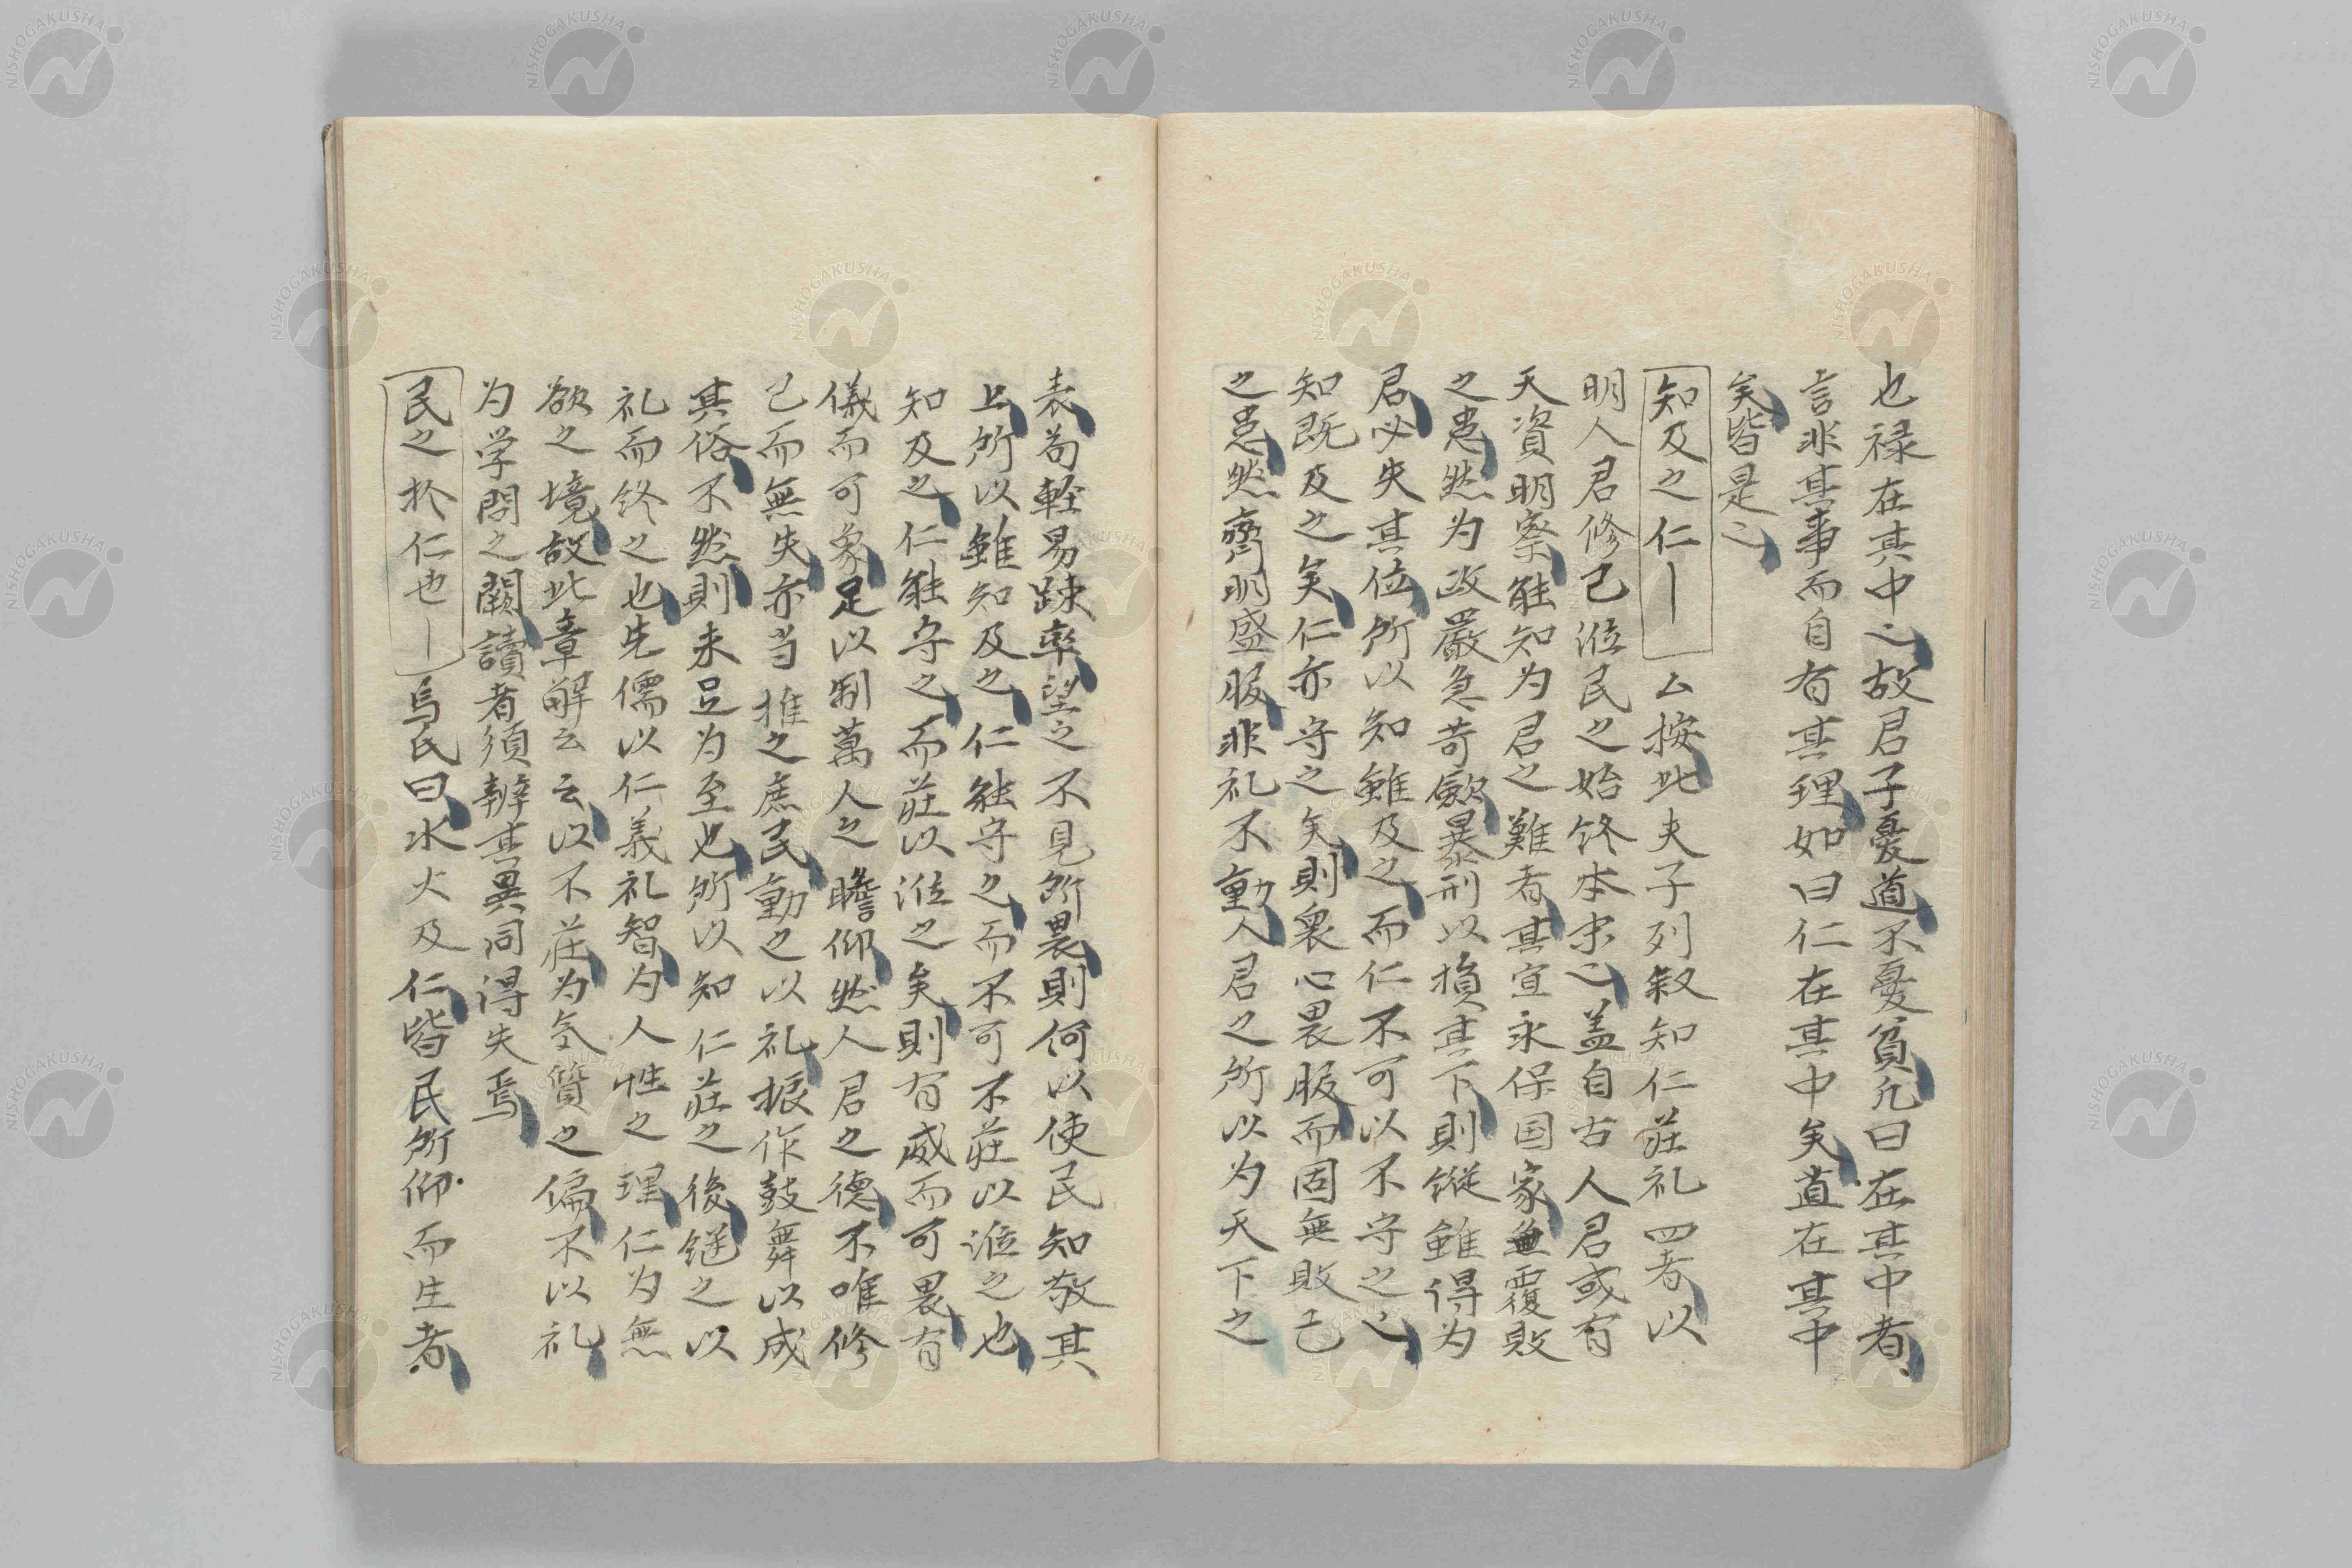 也禄在其中之故君子憂道不憂貧凡曰在其中者
言非其事而自有其理如曰仁在其中矣直在其中
矣皆是之
知及之仁｜ 厶按此夫子列叙知仁莊礼四者以
明人君修己涖民之始终本末之盖自古人君或有
天資明察能知为君之難者其宜永保国家無覆敗
之患然为政嚴急苛歛暴刑以損其下則縦雖得为
君必失其位所以知雖及之而仁不可以不守之之
知既及之矣仁亦守之矣則衆心畏服而固無敗亡
之患然齊明盛服非礼不動人君之所以为天下之
表苟軽易踈率望之不見所畏則何以使民知敬其
上所以雖知及之仁能守之而不可不莊以涖之也
知及之仁能守之而莊以涖之矣則有威而可畏有
儀而可象足以制萬人之瞻仰然人君之德不唯修
己而無失亦当推之庶民動之以礼振作鼓舞以成
其俗不然則未足为至也所以知仁莊之後継之以
礼而终之也先儒以仁義礼智为人性之理仁为無
欲之境故此章解云云以不莊为氣質之偏不以礼
为学問之闕讀者須辨其異同得失焉
民之於仁也｜ 馬氏曰水火及仁皆民所仰而生者
NISHOGAKUSHA